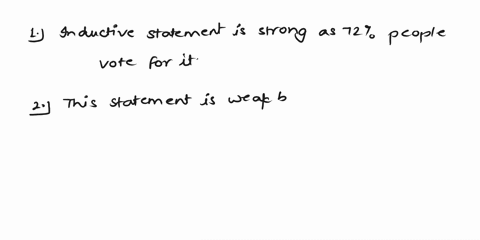 1.) Inductive statement is strong as 72% people
vote for it.
2.) This statement is weak b